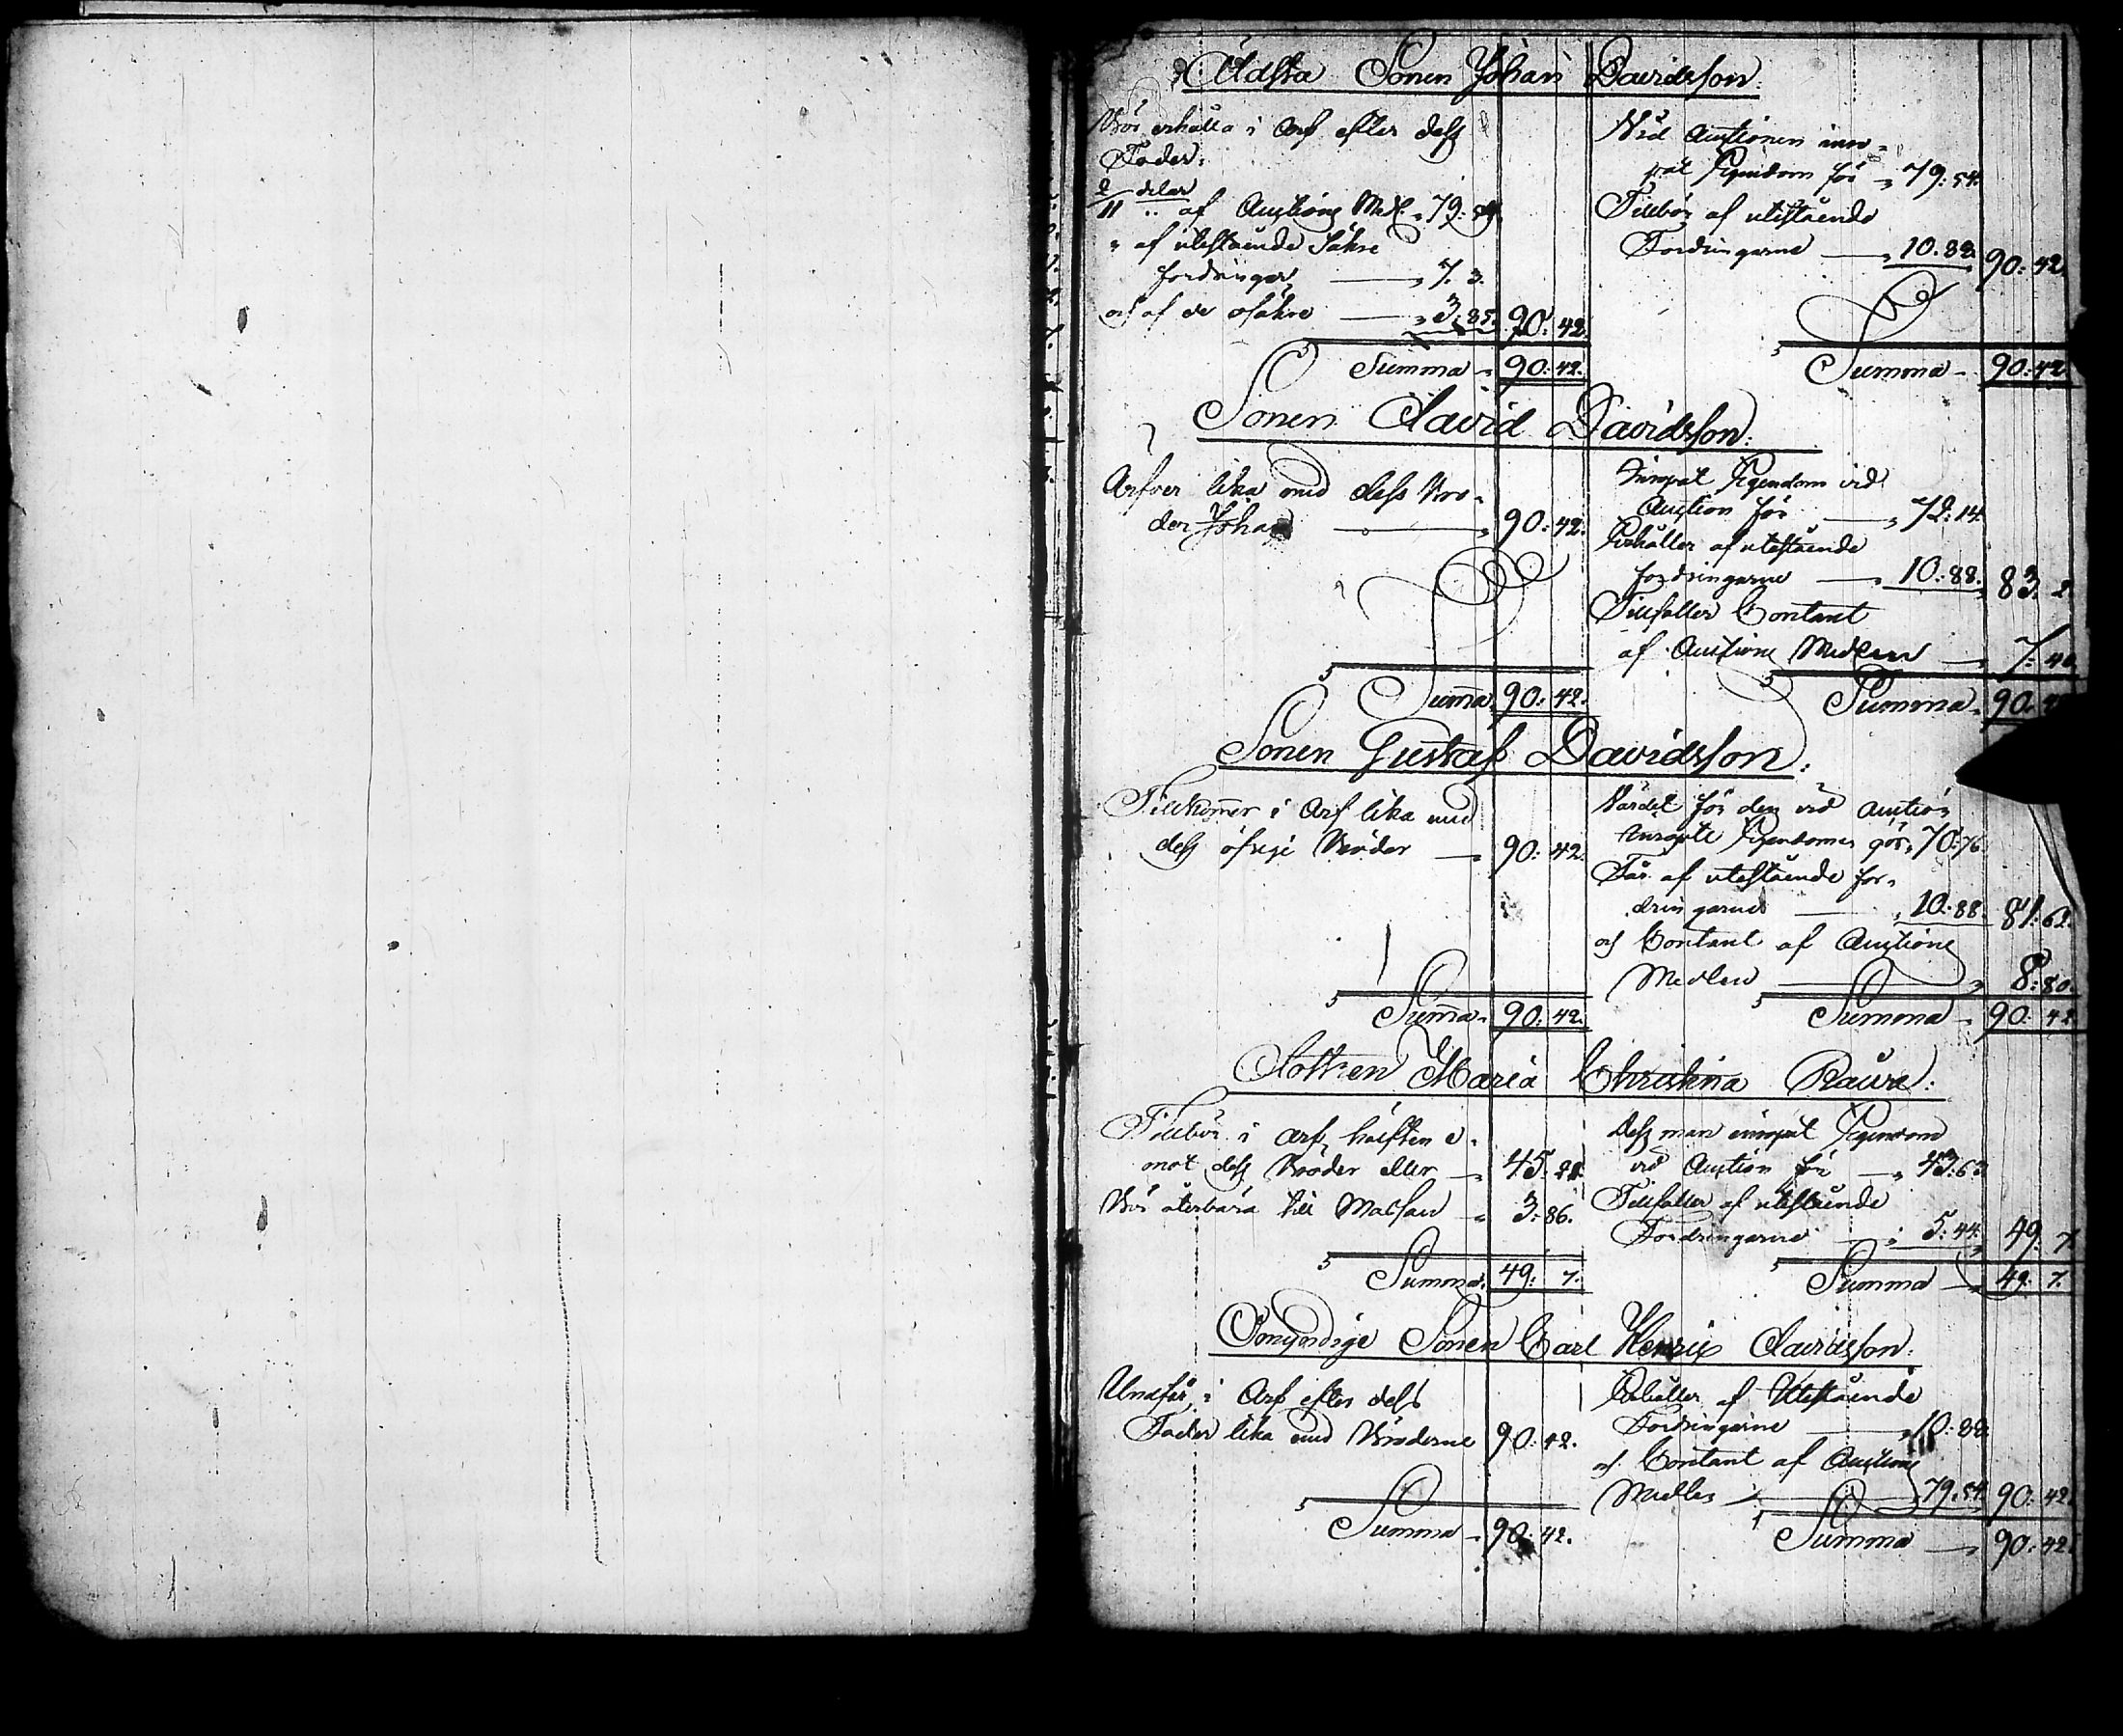 Äldsta Sonen Johan Davidsson.
Bör erhålla i Arf efter dess
Fader.
2/11 delar af Auctions Med. „ 79: 54.
„ af utestående säkre
fordringar — „ 7. 3.
och af de osäkre — „ 3: 85. 90: 42.
Summa „ 90: 42.
Vid Auctionen inro-
pat Egendom för „ 79: 54.
Tillbör af utestående
Fordringarne — „ 10. 88. 90: 42.
Summa „ 90: 42.
Sonen David Davidsson.
Ärfver lika med dess Bro-
der Johan — „ 90: 42.
Summa. 90: 42.
Inropat Egendom vid
Auction för — „ 72: 14.
Erhåller af utestående
fordringarne — „ 10: 88. 83. 2.
Tillfaller Contant
af Auctions Medlen — „ 7: 40.
Summa „ 90: 42.
Sonen Gustaf Davidsson.
Tillkommer i Arf lika med
dess öfrige Bröder — „ 90: 42.
Summa „ 90: 42.
Värdet för den vid Auction
inropte Egendomen gör „ 70: 76.
Får af utestående for-
dringarne — „ 10: 88. 81: 62.
och Contant af Auctions
Medlen — „ 8: 80.
Summa „ 90: 42.
Dottren Maria Christina
Tillbör i Arf, hälften e-
mot dess Broder eller „ 45: 21.
Bör återbära till Massan „ 3: 86.
Summa. 49: 7.
Dess man inropat Egendom
vid Auction för — „ 43: 63.
Tillfaller af utestående
Fordringarne „ 5: 44. 49: 7.
Summa — „ 49: 7.
Oomyndige Sonen Carl Henric Davidsson.
Undfår i Arf efter dess
Fader lika med Bröderne 90: 42.
Summa „ 90: 42.
Erhåller af Utestående
Fordringarne — „ 10: 88.
och Contant af Auctions
Medlen — 79: 54. 90: 42.
Summa — „ 90: 42.